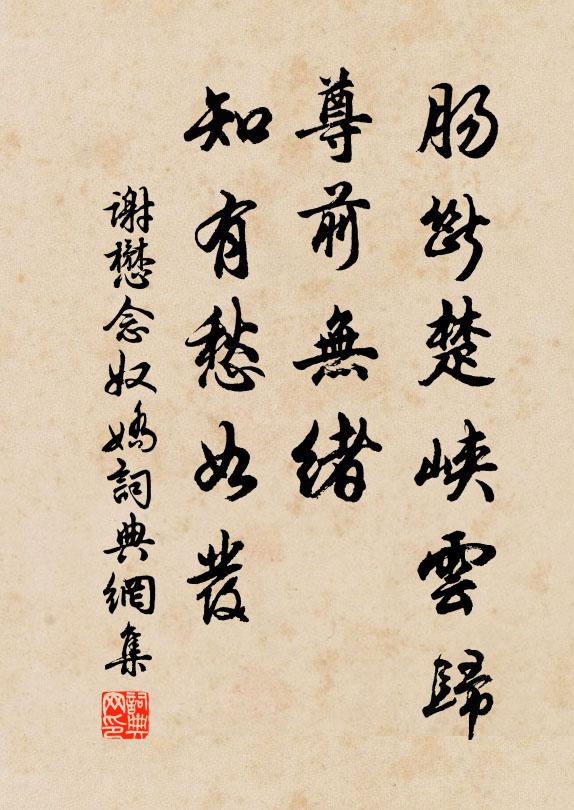 肠斷楚峽雲歸
尊前無緒
知有愁如發
謝懋念奴嬌詞典網集
詞典网印